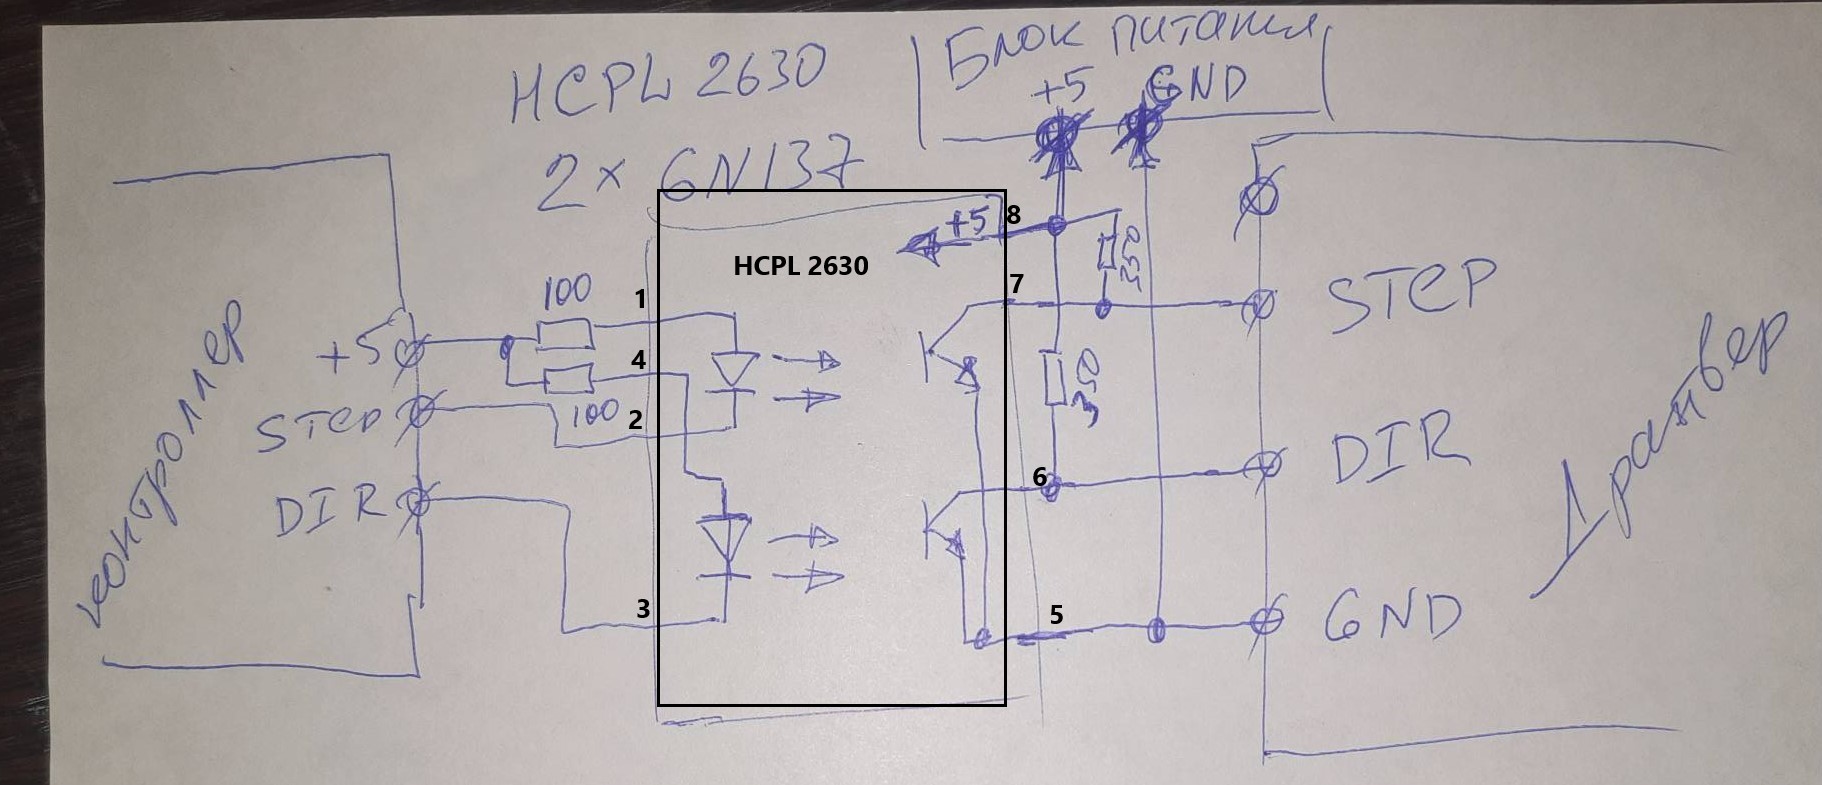 HCPL 2630
2 x 6N137
Блок питания
+5 GND
HCPL 2630
+5
8
7
6
5
1
4
2
3
100
100
350
350
контроллер
+5
STEP
DIR
STEP
DIR
GND
Драйвер